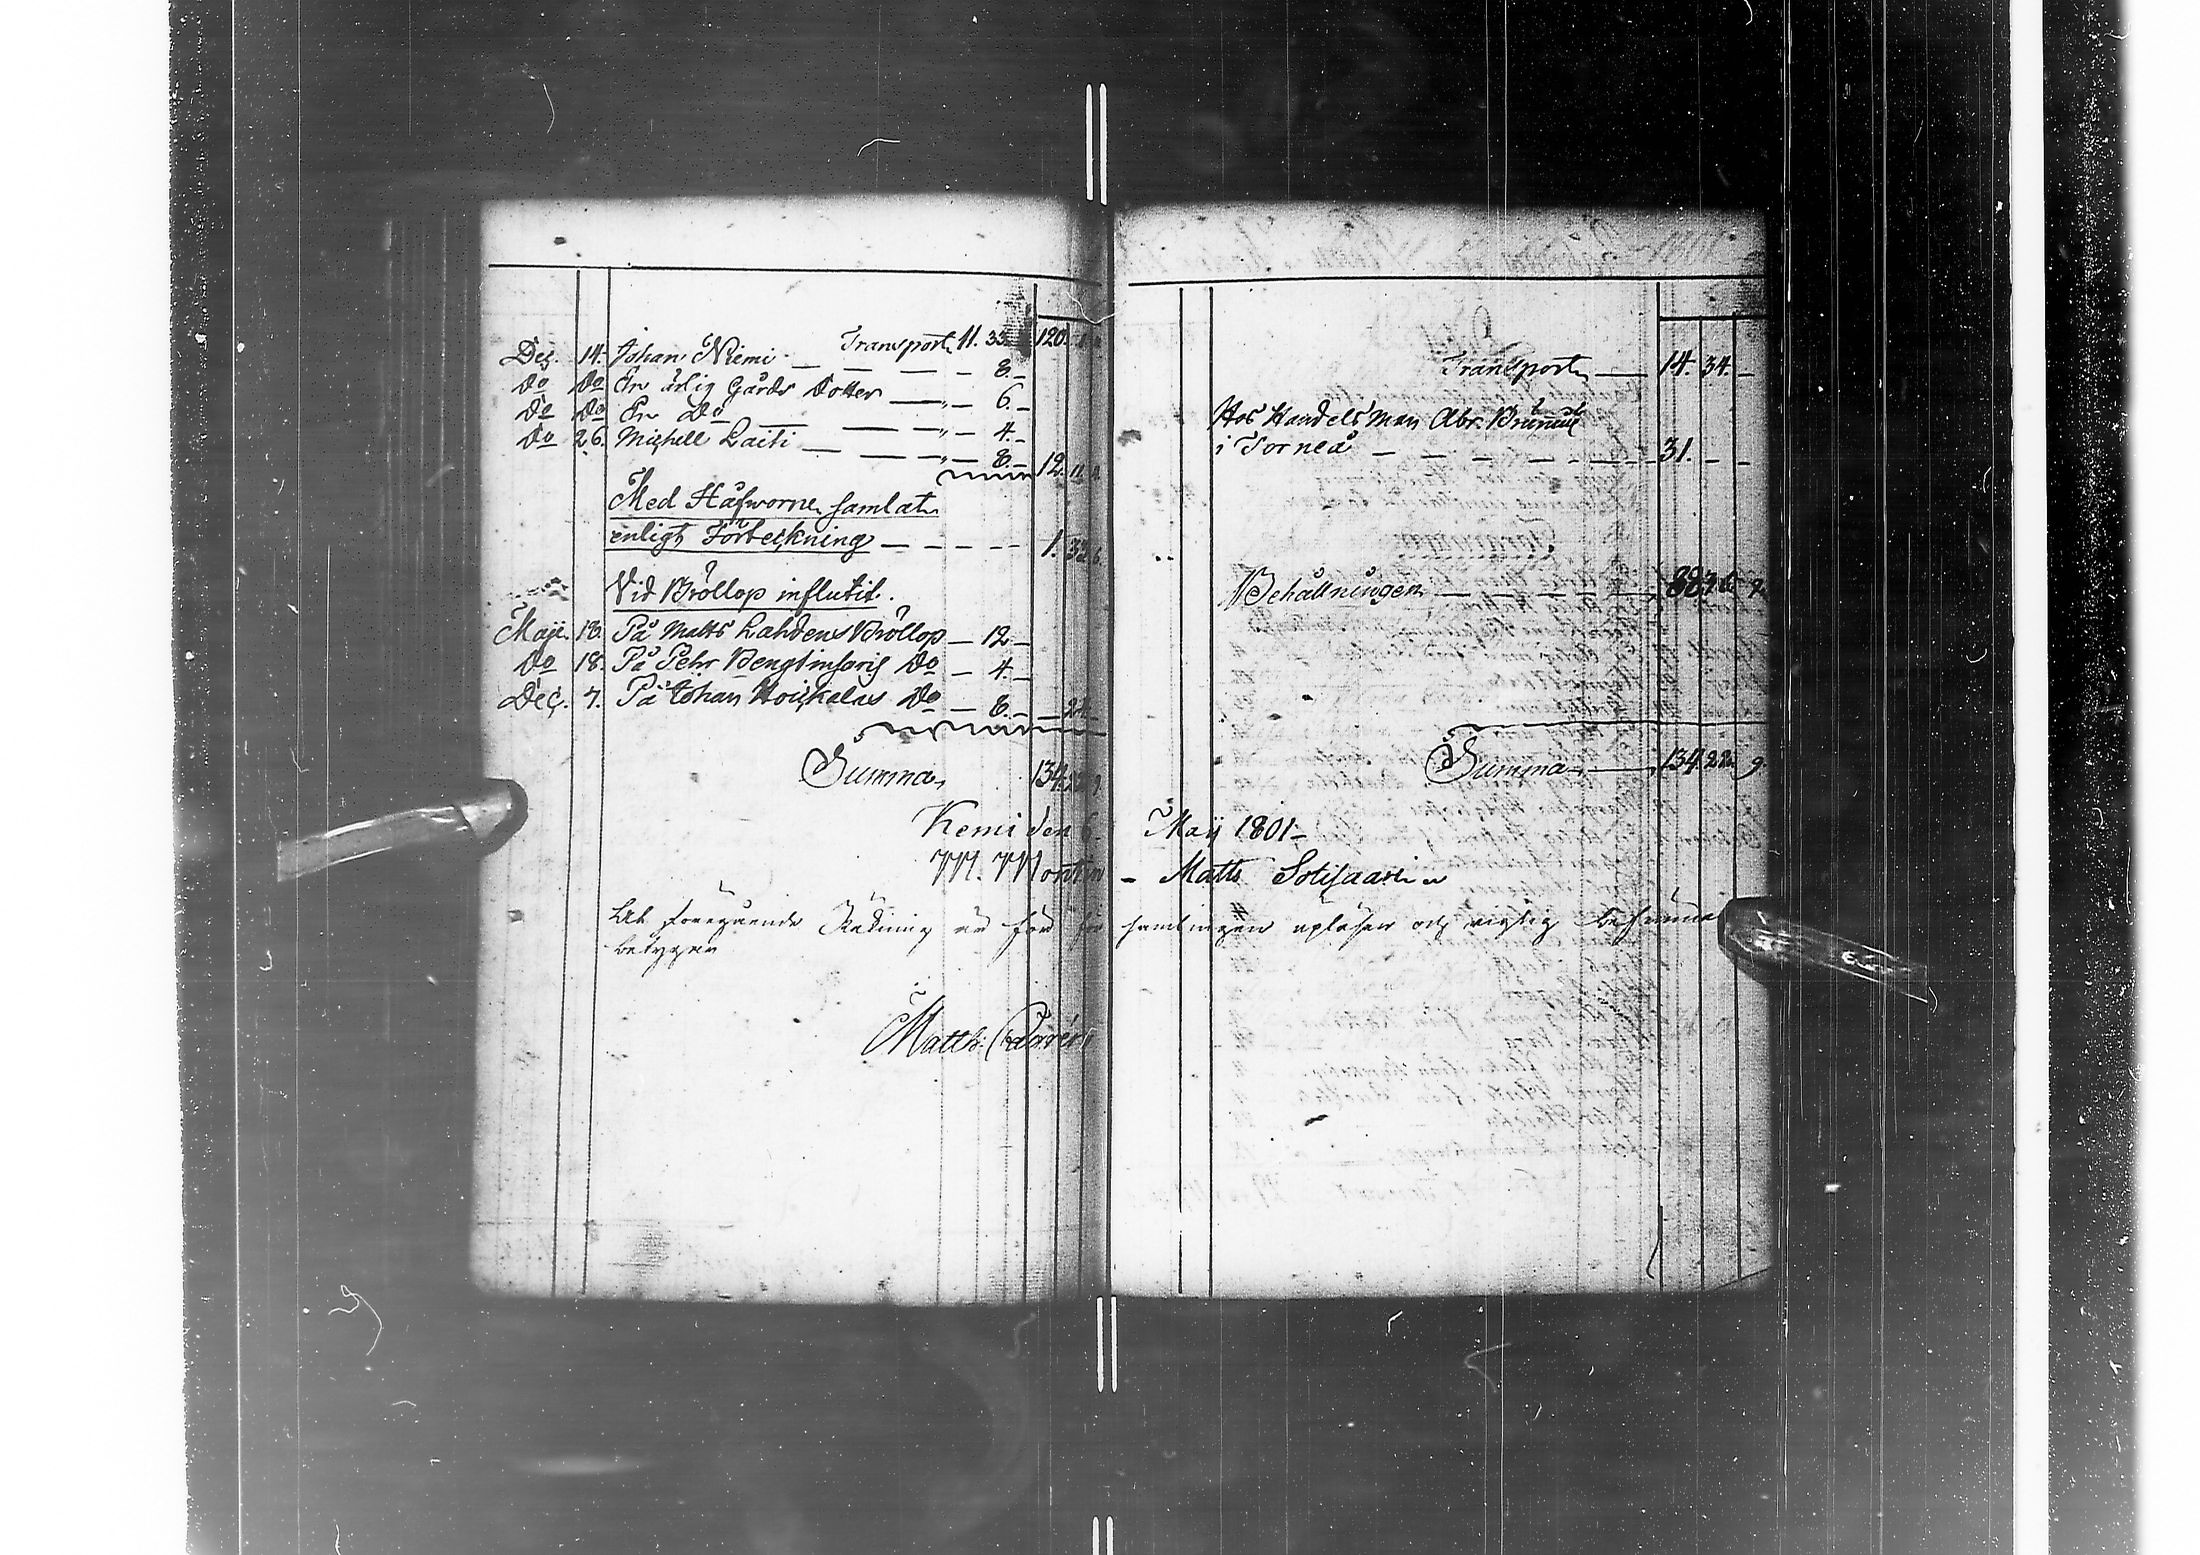 Transport 11. 33. 120.
Dec. 14. Johan Niemi — — — 8.–
Do Do En ärlig Gårds Dotter — „ — 6.–
Do Do En Do — — „ — 4.–
Do 26. Michell Laiti — — „ — 8.– 12. 11.
Med Håfworne samlat
enligt Förteckning — — — — 1. 32. 6.
Vid Bröllop influtit.
Maji. 18. På Matts Lahdens Bröllop — 12 –
Do 18. På Pehr Do — 4. –
Dec. 7. På Johan Hoickalas Do — 8. – 24.
Summa 134.
Kemi den 6
M.
At föregående Räkning är för för
betygar
Matth.
Transport — 14. 34. –
Hos Handelsman Abr.
i Torneå — — — — 31. – –
Behållningen — — — 88.
Summa — 134. 22. 9.
Maij 1801 –
– Matts Sotisaari
samlingen upläsen och riktig befunnen